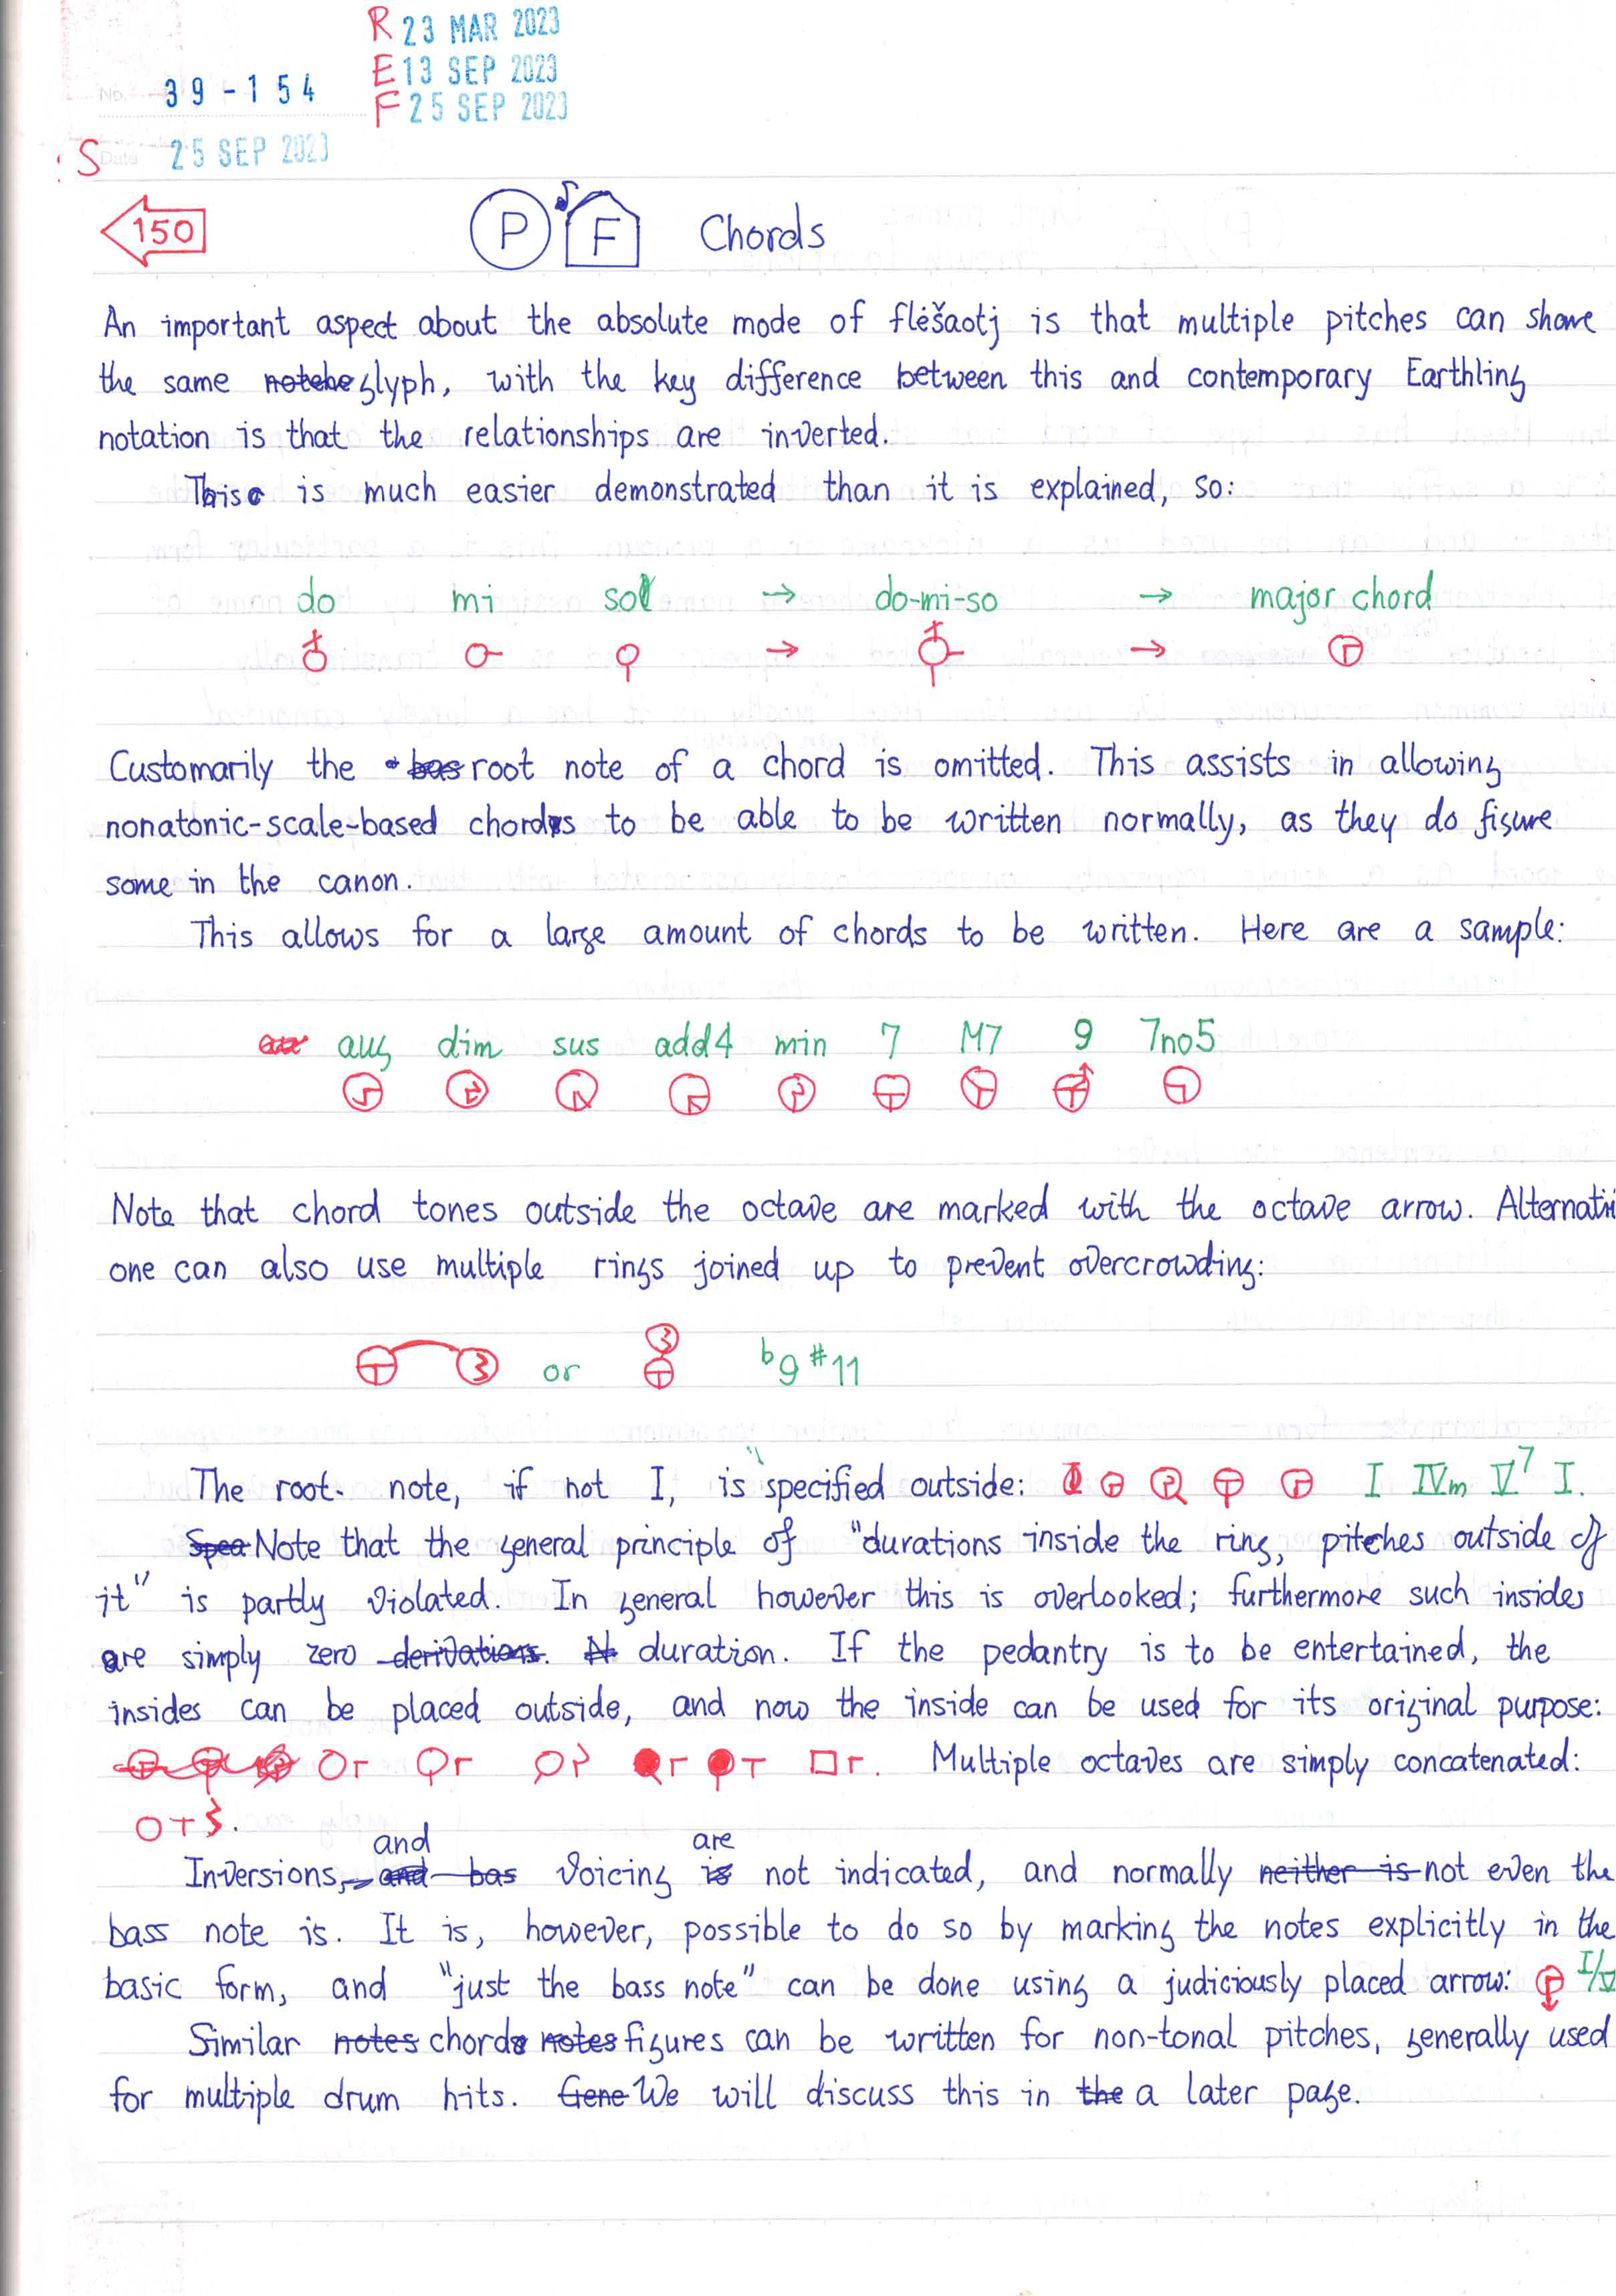 R 23 MAR 2023
No. 39-154 E 13 SEP 2023
F 25 SEP 2023
S Date 25 SEP 2023
150 P F Chords
An important aspect about the absolute mode of flėšaotj is that multiple pitches can share
the same glyph, with the key difference between this and contemporary Earthling
notation is that the relationships are inverted.
This is much easier demonstrated than it is explained, so:
do mi sol → do-mi-so → major chord
→ →
Customarily the root note of a chord is omitted. This assists in allowing
nonatonic-scale-based chords to be able to be written normally, as they do figure
some in the canon.
This allows for a large amount of chords to be written. Here are a sample:
aug dim sus add4 min 7 M7 9 7no5
Note that chord tones outside the octave are marked with the octave arrow. Alternativ
one can also use multiple rings joined up to prevent overcrowding:
or b9#11
The root note, if not I, is specified outside: I IVm V7 I.
Note that the general principle of "durations inside the ring, pitches outside of
it" is partly violated. In general however this is overlooked; furthermore such insides
are simply zero duration. If the pedantry is to be entertained, the
insides can be placed outside, and now the inside can be used for its original purpose:
Multiple octaves are simply concatenated:
and are
Inversions voicing not indicated, and normally not even the
bass note is. It is, however, possible to do so by marking the notes explicitly in the
basic form, and "just the bass note" can be done using a judiciously placed arrow: I/V
Similar chord figures can be written for non-tonal pitches, generally used
for multiple drum hits. We will discuss this in a later page.